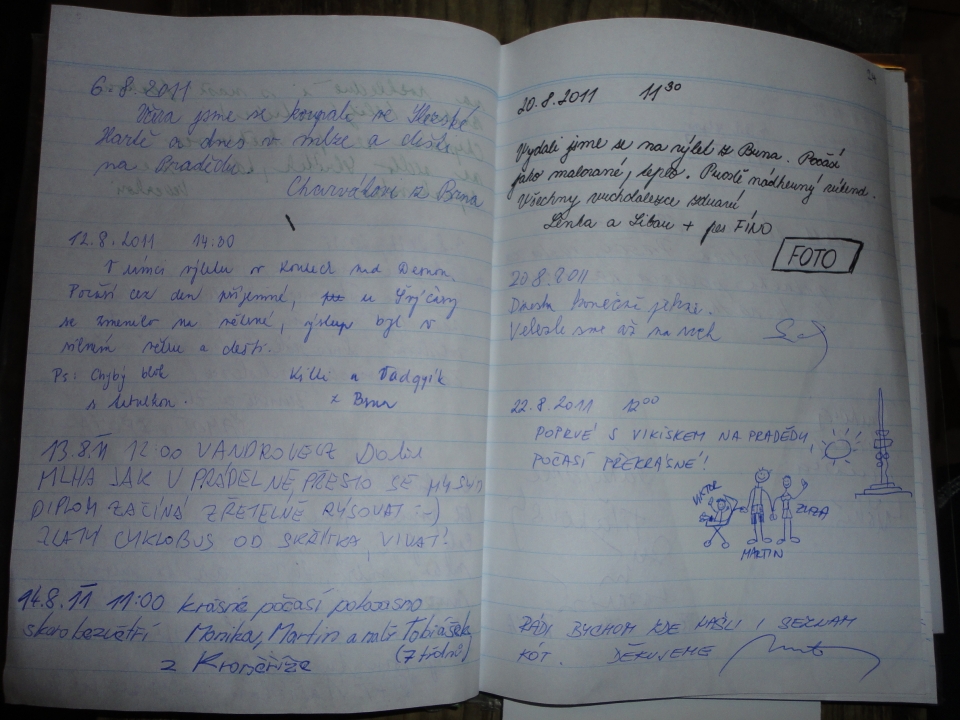 6.8.2011
Včera jsme se koupali ve Slezské
Hartě a dnes v mlze a dešti
na Pradědu
Charvátovi z Brna
12.8.2011 14:00
V rámci výletu v Koutech nad Desnou.
Počasí cez den příjemné, u Švýcárny
se zmenilo na větrné, výstup byl v
silném větru a dešti.
Ps: Chybý blok Killi a
s . z Brna
13.8.11 12:00 VANDROVECZ
MLHA JAK V PRÁDELNĚ, PŘESTO SE MÝ SVŮJ
DIPLOM ZAČÍNÁ ZŘETELNĚ RÝSOVAT :-)
ZLATÝ CYKLOBUS OD SKŘÍTKA, VIVAT!
14.8.11 11:00 krásné počasí polojasno
skoro bezvětří Monika, Martin a malý Tobiášek
(7 týdnů)
z Kroměříže
20.8.2011 11³⁰
Vydali jsme se na výlet z Brna. Počasí
jako malované, teplo. Prostě nádherný víkend.
Všechny zdraví
Lenka a Libau + pes FÍNO
FOTO
20.8.2011
konečně
22.8.2011 12⁰⁰
POPRVÉ S VIKISKEM NA PRADĚDU,
POČASÍ PŘEKRÁSNÉ!
VIKTOR
ZUZA
MARTIN
RÁDI BYCHOM ZDE NAŠLI I SEZNAM
KÓT. DĚKUJEME